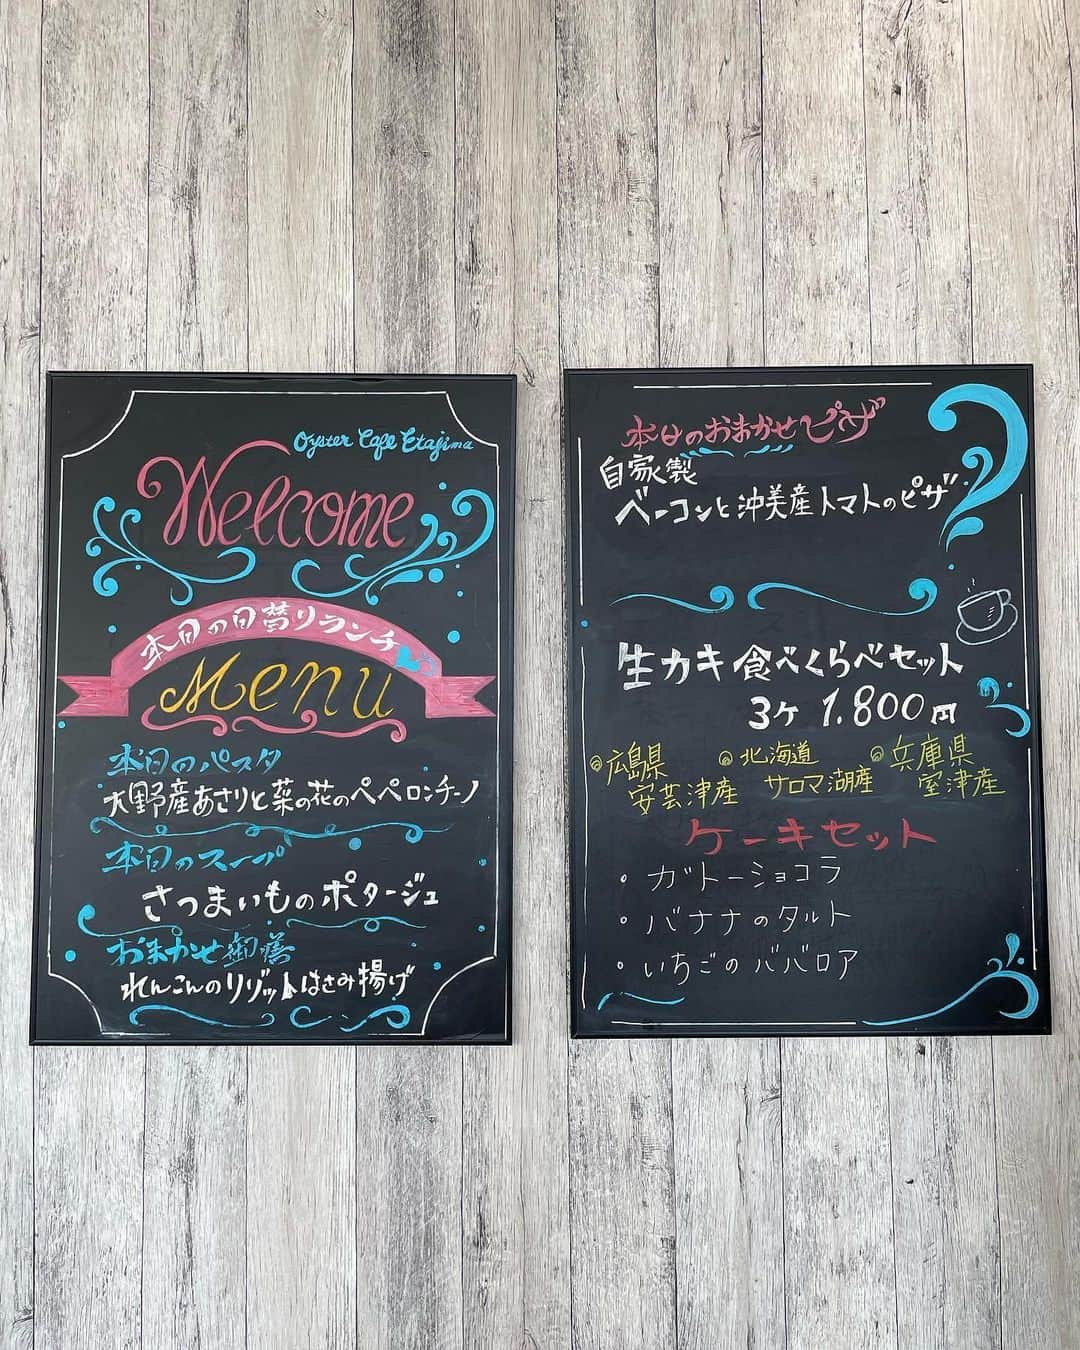 Oyster Cafe Etajima
Welcome
本日の日替りランチ
Menu
本日のパスタ
大野産あさりと菜の花のペペロンチーノ
本日のスープ
さつまいものポタージュ
おまかせ御膳
れんこんのリゾットはさみ揚げ
本日のおまかせピザ
自家製
ベーコンと沖美産トマトのピザ
生カキ食べくらべセット
3ケ 1.800円
◎広島県 安芸津産
◎北海道 サロマ湖産
◎兵庫県 室津産
ケーキセット
・ガトーショコラ
・バナナのタルト
・いちごのババロア